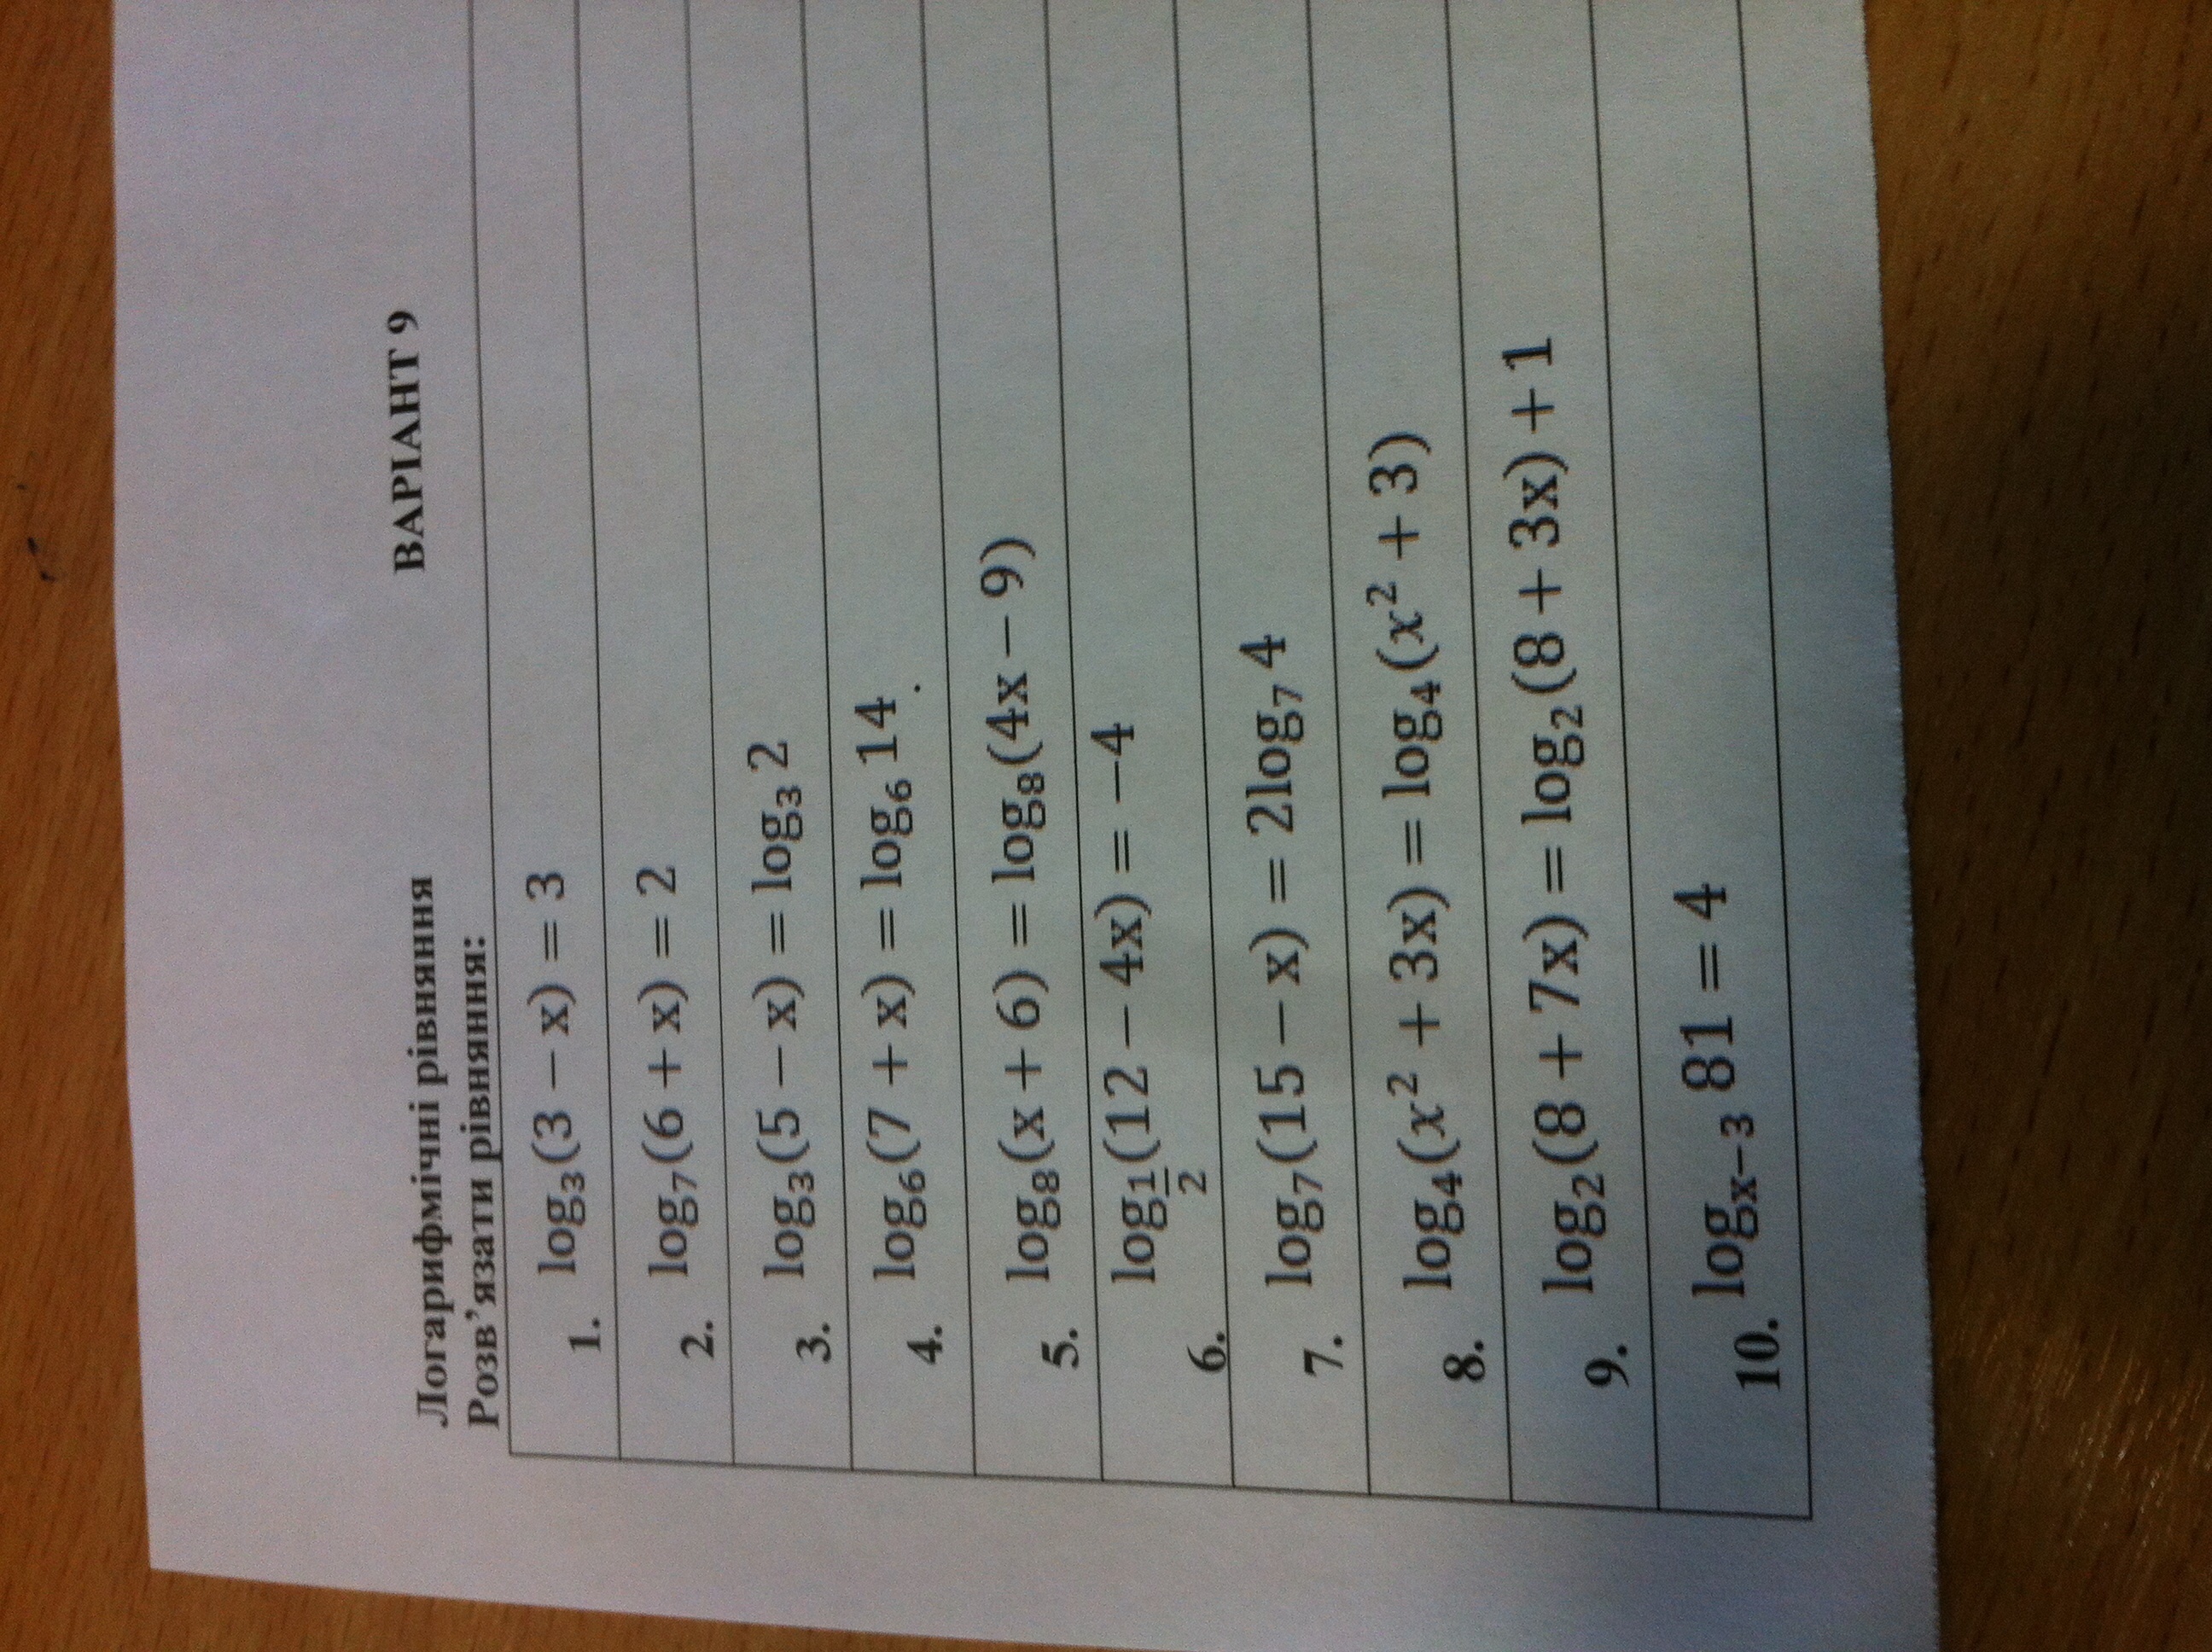 Логарифмічні рівняння ВАРІАНТ 9
Розв’язати рівняння:
1. log₃(3 − x) = 3
2. log₇(6 + x) = 2
3. log₃(5 − x) = log₃ 2
4. log₆(7 + x) = log₆ 14
5. log₈(x + 6) = log₈(4x − 9)
6. log_{1/2}(12 − 4x) = −4
7. log₇(15 − x) = 2log₇ 4
8. log₄(x² + 3x) = log₄(x² + 3)
9. log₂(8 + 7x) = log₂(8 + 3x) + 1
10. logₓ₋₃ 81 = 4